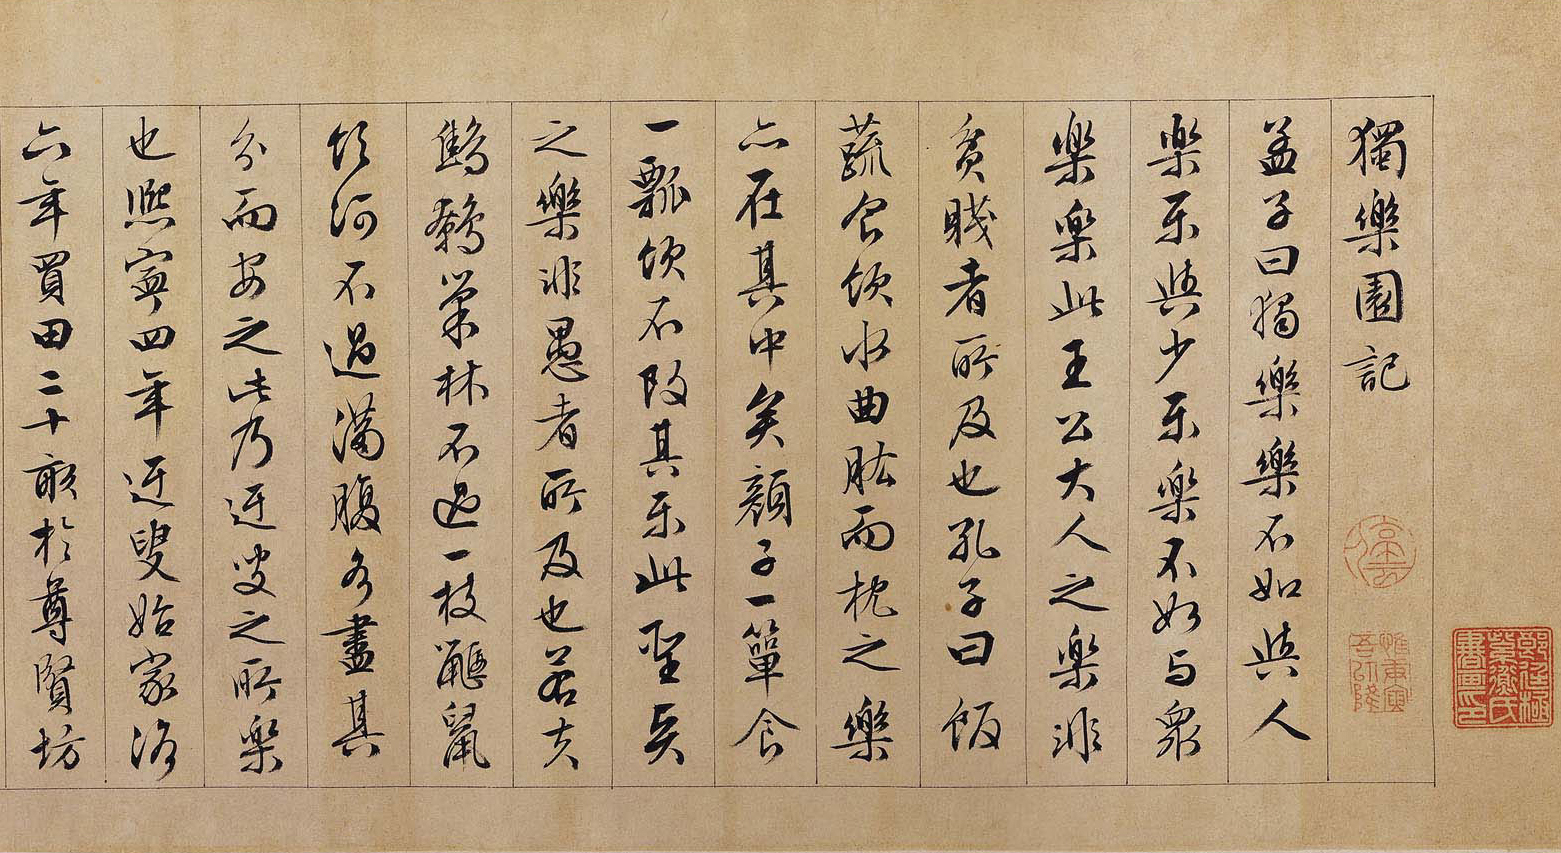 獨樂園記
孟子曰獨樂樂不如與人
樂樂與少樂樂不如与衆
樂樂此王公大人之樂非
貧賤者所及也孔子曰飯
蔬食飲水曲肱而枕之樂
亦在其中矣顏子一簞食
一瓢飲不改其樂此聖賢
之樂非愚者所及也若夫
鷦鷯巢林不過一枝鼴鼠
飲河不過滿腹各盡其
分而安之此乃迂叟之所樂
也熙寧四年迂叟始家洛
六年買田二十畝於尊賢坊
停雲
惟庚寅吾以降